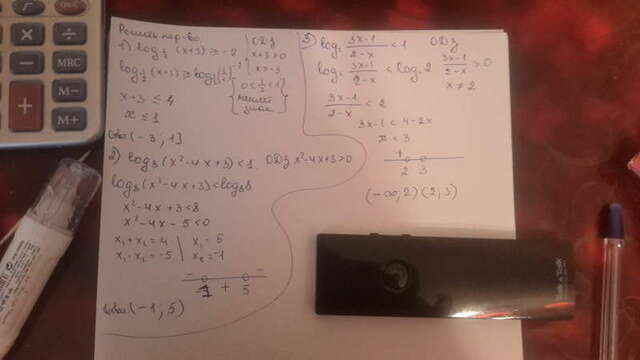 Решить нер-во
1) log½ (x+3) ≥ -2
ОДЗ
x+3>0
x>-3
log½ (x+3) ≥ log½ (½)⁻²
{0<½<1
меняем
знак}
x+3 ≤ 4
x ≤ 1
(-3; 1]
2) log₈(x²-4x+3)<1. ОДЗ x²-4x+3>0
log₈(x²-4x+3)<log₈8
x²-4x+3<8
x²-4x-5<0
x₁+x₂=4 | x₁=5
x₁·x₂=-5 | x₂=-1
- + -
-1 5
(-1; 5)
3) log₂ 3x-1/2-x < 1 ОДЗ
log₂ 3x-1/2-x < log₂2 3x-1/2-x > 0
x≠2
3x-1/2-x < 2
3x-1 < 4-2x
x < 3
+
2 3
(-∞; 2) (2; 3)
MRC
M-
M+